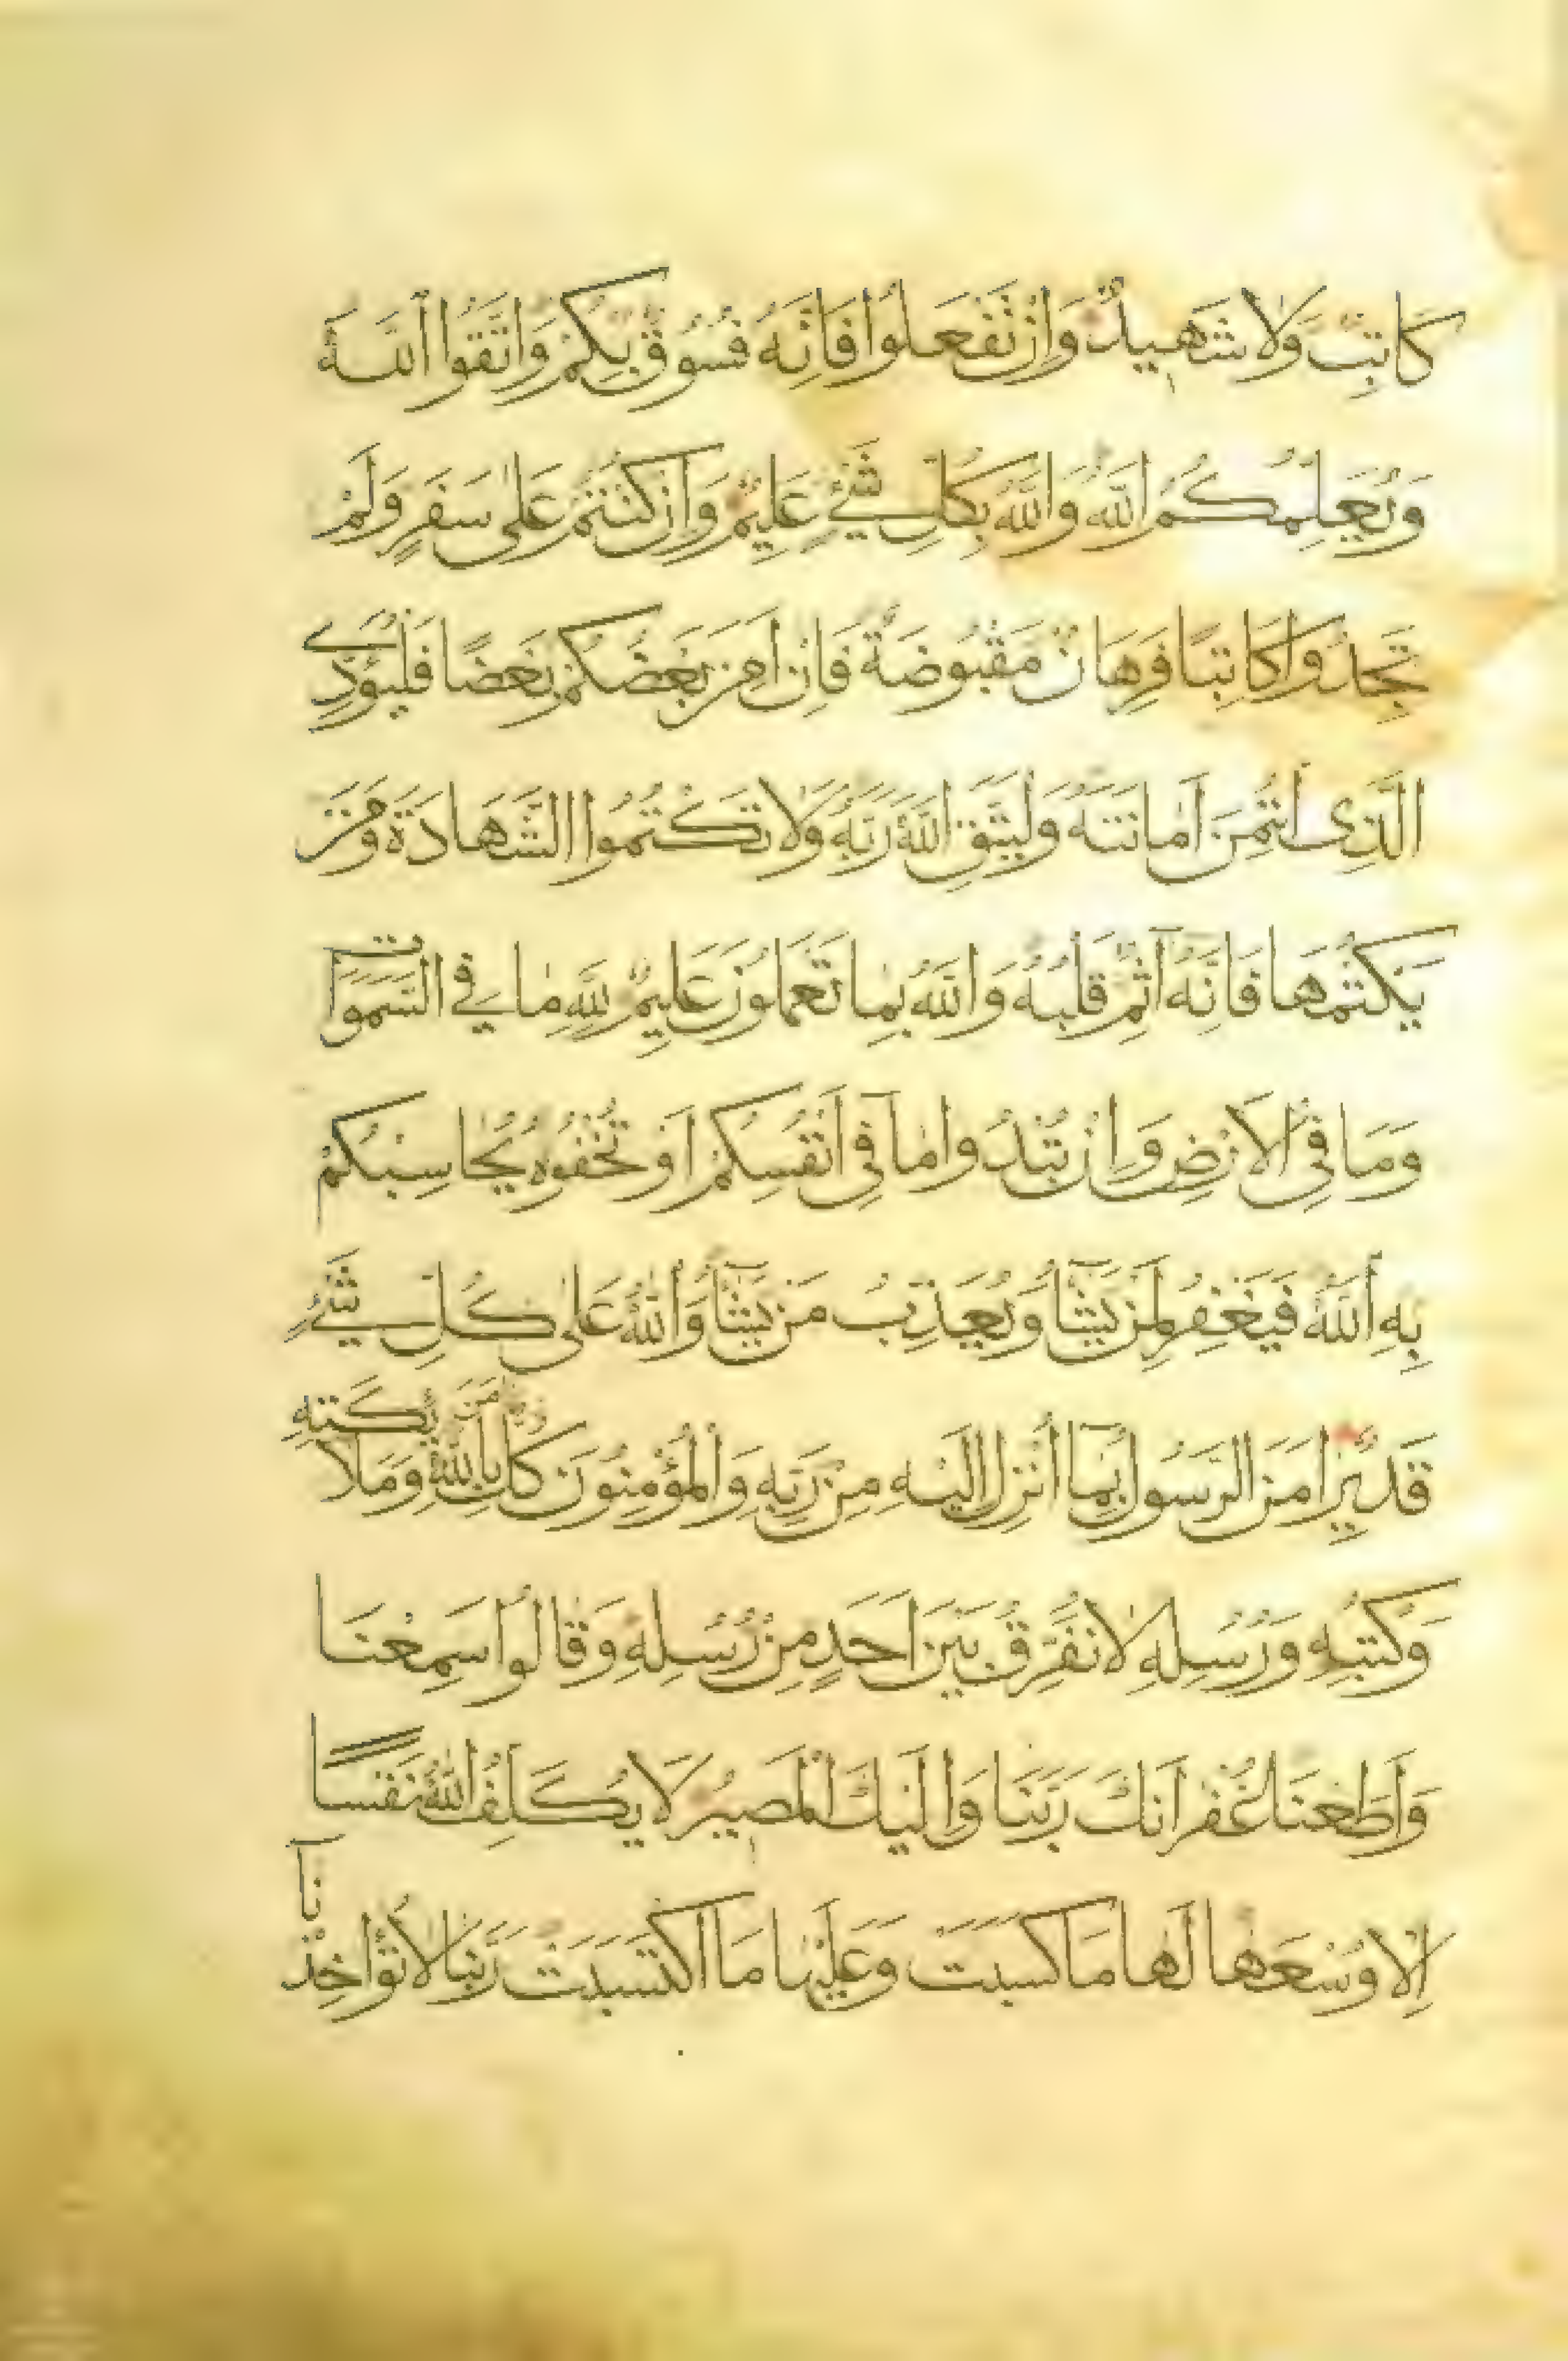 كَاتِبٌ وَلَا شَهِيدٌ وَاِنْ تَفْعَلُوا فَاِنَّهُ فُسُوقٌ بِكُمْ وَاتَّقُوا اللّٰهَ
وَيُعَلِّمُكُمُ اللّٰهُ وَاللّٰهُ بِكُلِّ شَیْءٍ عَلِيمٌ وَاِنْ كُنْتُمْ عَلٰى سَفَرٍ وَلَمْ
تَجِدُوا كَاتِبًا فَرِهَانٌ مَقْبُوضَةٌ فَاِنْ اَمِنَ بَعْضُكُمْ بَعْضًا فَلْيُؤَدِّ
الَّذِى اؤْتُمِنَ اَمَانَتَهُ وَلْيَتَّقِ اللّٰهَ رَبَّهُ وَلَا تَكْتُمُوا الشَّهَادَةَ وَمَنْ
يَكْتُمْهَا فَاِنَّهُ آثِمٌ قَلْبُهُ وَاللّٰهُ بِمَا تَعْمَلُونَ عَلِيمٌ لِلّٰهِ مَا فِي السَّمَوَاتِ
وَمَا فِى الْاَرْضِ وَاِنْ تُبْدُوا مَا فِى اَنْفُسِكُمْ اَوْ تُخْفُوهُ يُحَاسِبْكُمْ
بِهِ اللّٰهُ فَيَغْفِرُ لِمَنْ يَشَآءُ وَيُعَذِّبُ مَنْ يَشَآءُ وَاللّٰهُ عَلٰى كُلِّ شَیْءٍ
قَدِيرٌ اٰمَنَ الرَّسُولُ بِمَآ اُنْزِلَ اِلَيْهِ مِنْ رَبِّهِ وَالْمُؤْمِنُونَ كُلٌّ اٰمَنَ بِاللّٰهِ وَمَلَائِكَتِهِ
وَكُتُبِهِ وَرُسُلِهِ لَا نُفَرِّقُ بَيْنَ اَحَدٍ مِنْ رُسُلِهِ وَقَالُوا سَمِعْنَا
وَاَطَعْنَا غُفْرَانَكَ رَبَّنَا وَاِلَيْكَ الْمَصِيرُ لَا يُكَلِّفُ اللّٰهُ نَفْسًا
اِلَّا وُسْعَهَا لَهَا مَا كَسَبَتْ وَعَلَيْهَا مَا اكْتَسَبَتْ رَبَّنَا لَا تُؤَاخِذْنَآ